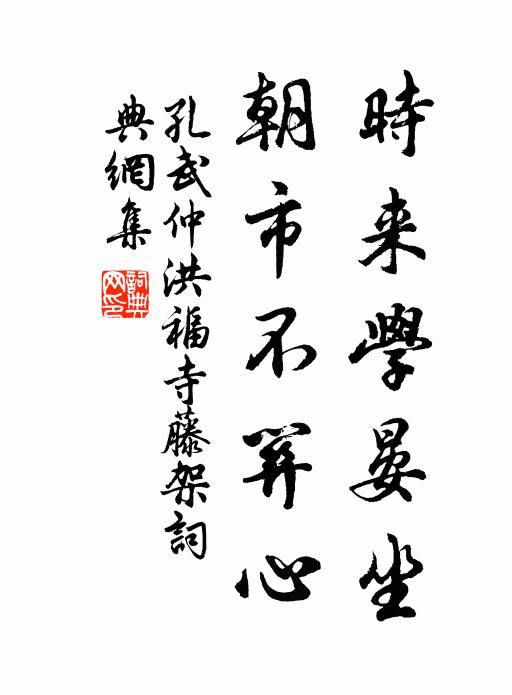 時来學晏坐
朝市不關心
孔武仲洪福寺藤架詞
典網集
詞典
网印